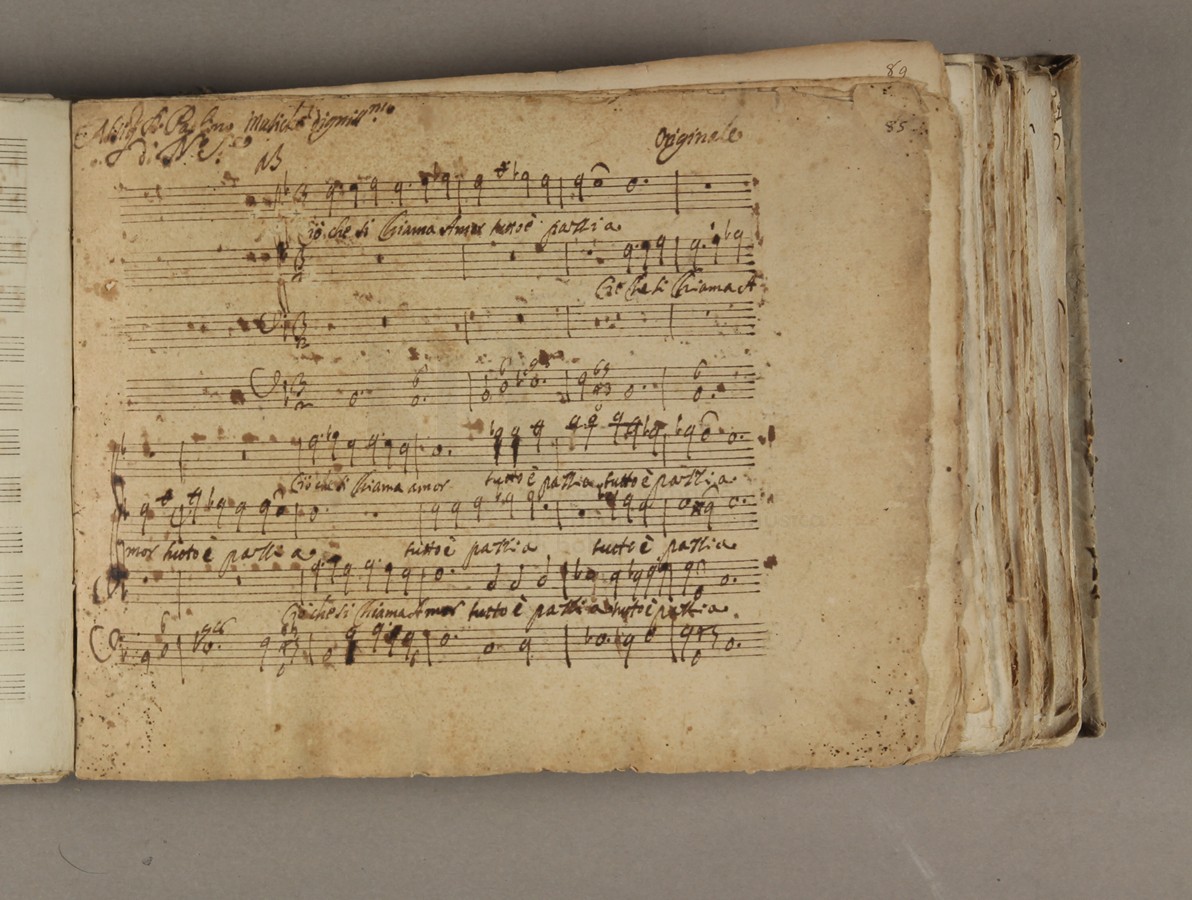 89
85
Originale
Ciò che si Chiama Amor tutto è pazzia
Ciò che si Chiama A
Ciò che si Chiama amor tutto è pazzia tutto è pazzia
mor tutto è pazzia tutto è pazzia tutto è pazzia
Ciò che si Chiama Amor tutto è pazzia tutto è pazzia